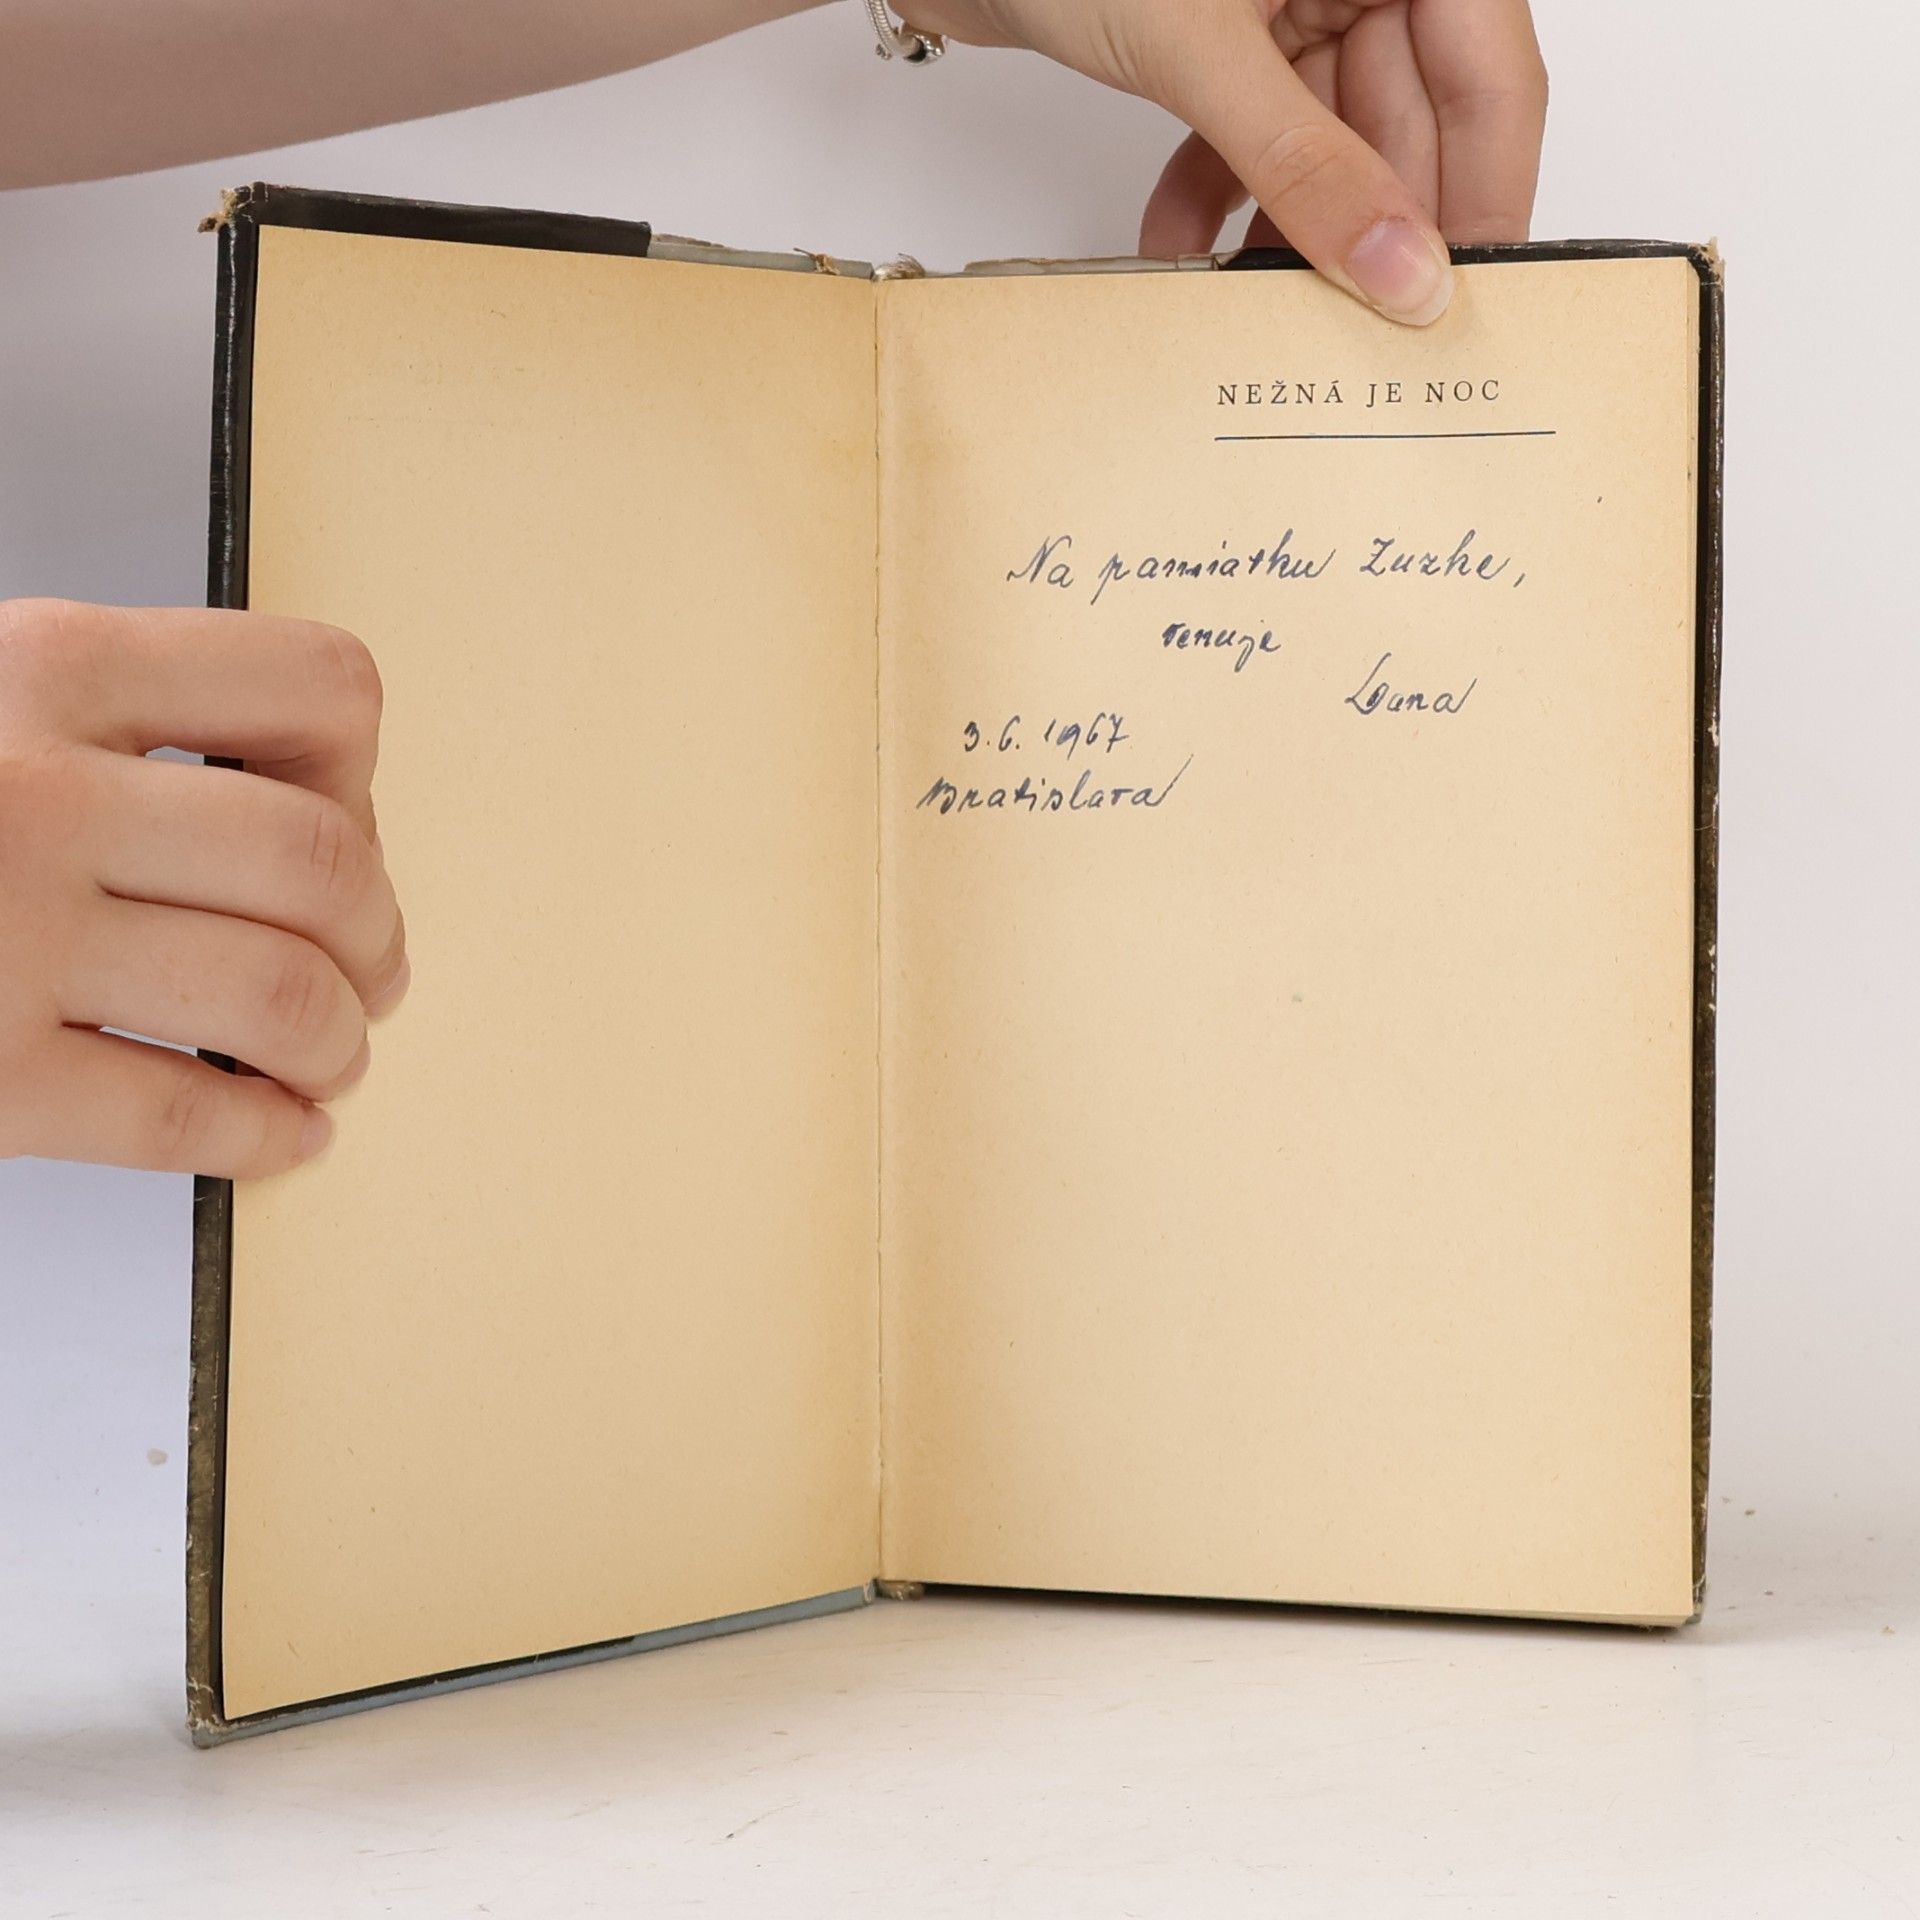 NEŽNÁ JE NOC
Na pamiatku Zuzke,
venuje
Dana
3.6. 1967
Bratislava